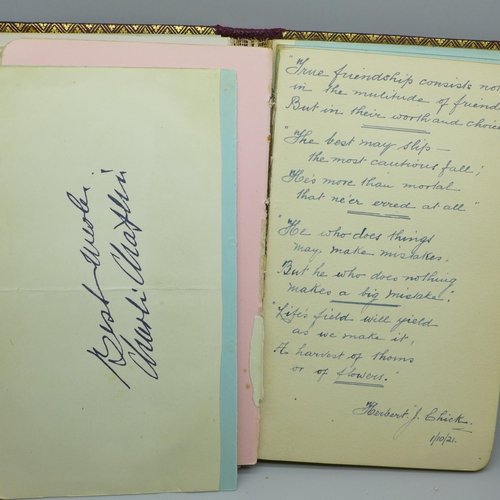 Best wishes
Charlie Chaplin
"True friendship consists not
in the mulitude of friend
But in their worth and choice
"The best may slip —
the most cautious fall;
He's more than mortal
that ne'er erred at all"
"He who does things
may make mistakes.
But he who does nothing
makes a big mistake".
"Life's field will yield
as we make it,
A harvest of thorns
or of flowers."
Herbert J. Chick.
1/10/21.